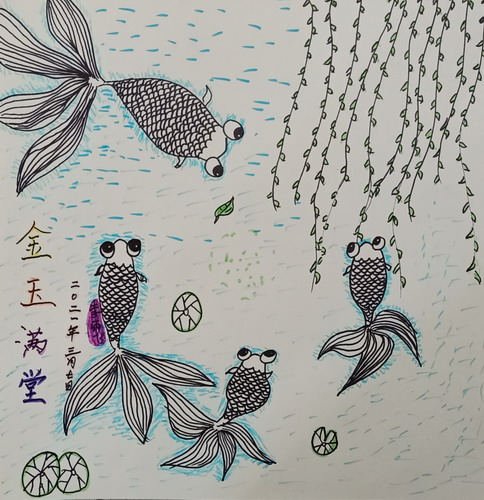 金玉满堂
二〇二一年三月